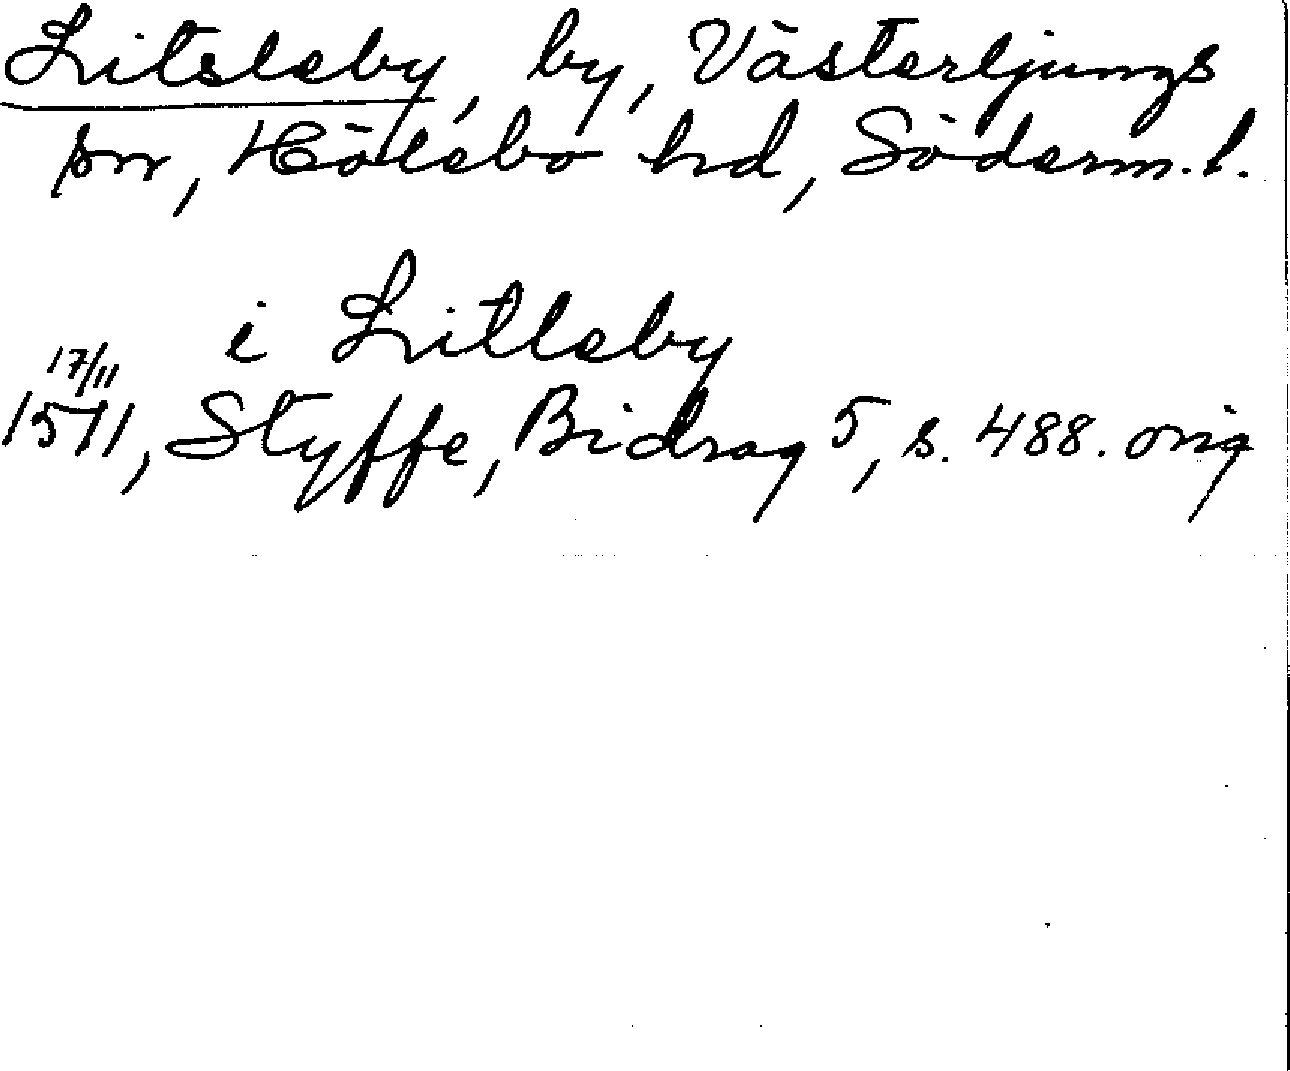 Litsleby, by, Västerljungs
sn, Hölebo hd, Söderm. l.
i Litleby
17/11
1511, Styffe, Bidrag 5, s. 488. orig